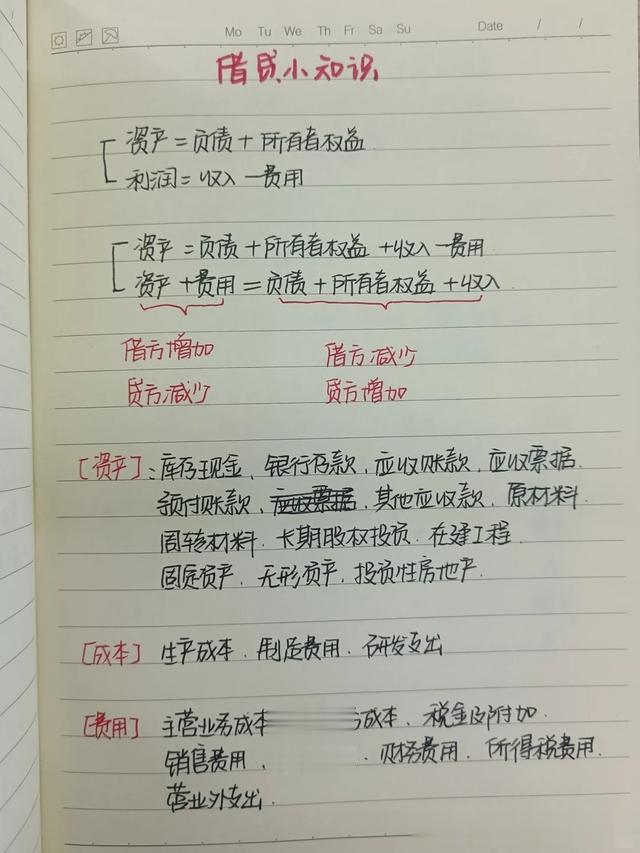 Mo Tu We Th Fr Sa Su Date / /
借贷小知识
资产=负债+所有者权益
利润=收入-费用
资产=负债+所有者权益+收入-费用
资产+费用=负债+所有者权益+收入
借方增加 借方减少
贷方减少 贷方增加
[资产]:库存现金、银行存款、应收账款、应收票据
预付账款、应收票据、其他应收款、原材料
周转材料、长期股权投资、在建工程
固定资产、无形资产、投资性房地产
[成本] 生产成本、制造费用、研发支出
[费用] 主营业务成本 成本、税金及附加
销售费用、 、财务费用、所得税费用
营业外支出